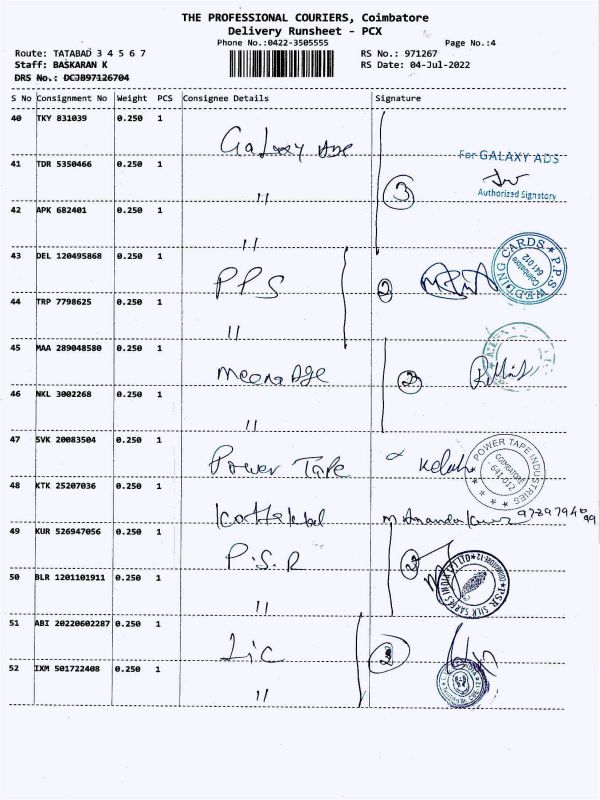 THE PROFESSIONAL COURIERS, Coimbatore
Delivery Runsheet - PCX
Phone No.:0422-3505555
Page No.:4
Route: TATABAD 3 4 5 6 7
RS No.: 971267
Staff: BASKARAN K
RS Date: 04-Jul-2022
DRS No.: DCJB97126704
S No Consignment No Weight PCS Consignee Details Signature
40 TKY 831039 0.250 1
Galaxy
For GALAXY ADS
41 TDR 5350466 0.250 1
"
3
Authorized Signatory
42 APK 682401 0.250 1
"
43 DEL 120495868 0.250 1
PPS
2
P.P.S WEDDING CARDS
Coimbatore
641 012
44 TRP 7798625 0.250 1
"
45 MAA 289048580 0.250 1
Meena Age
2
46 NKL 3002268 0.250 1
"
47 SVK 20083504 0.250 1
Power Tape
POWER TAPE INDUSTRIES
COIMBATORE
641-012
48 KTK 25207036 0.250 1
49 KUR 526947056 0.250 1
P.S.R
2
PSR SILK SAREES
50 BLR 1201101911 0.250 1
"
51 ABI 20220602287 0.250 1
Lic
2
52 IXM 501722408 0.250 1
"